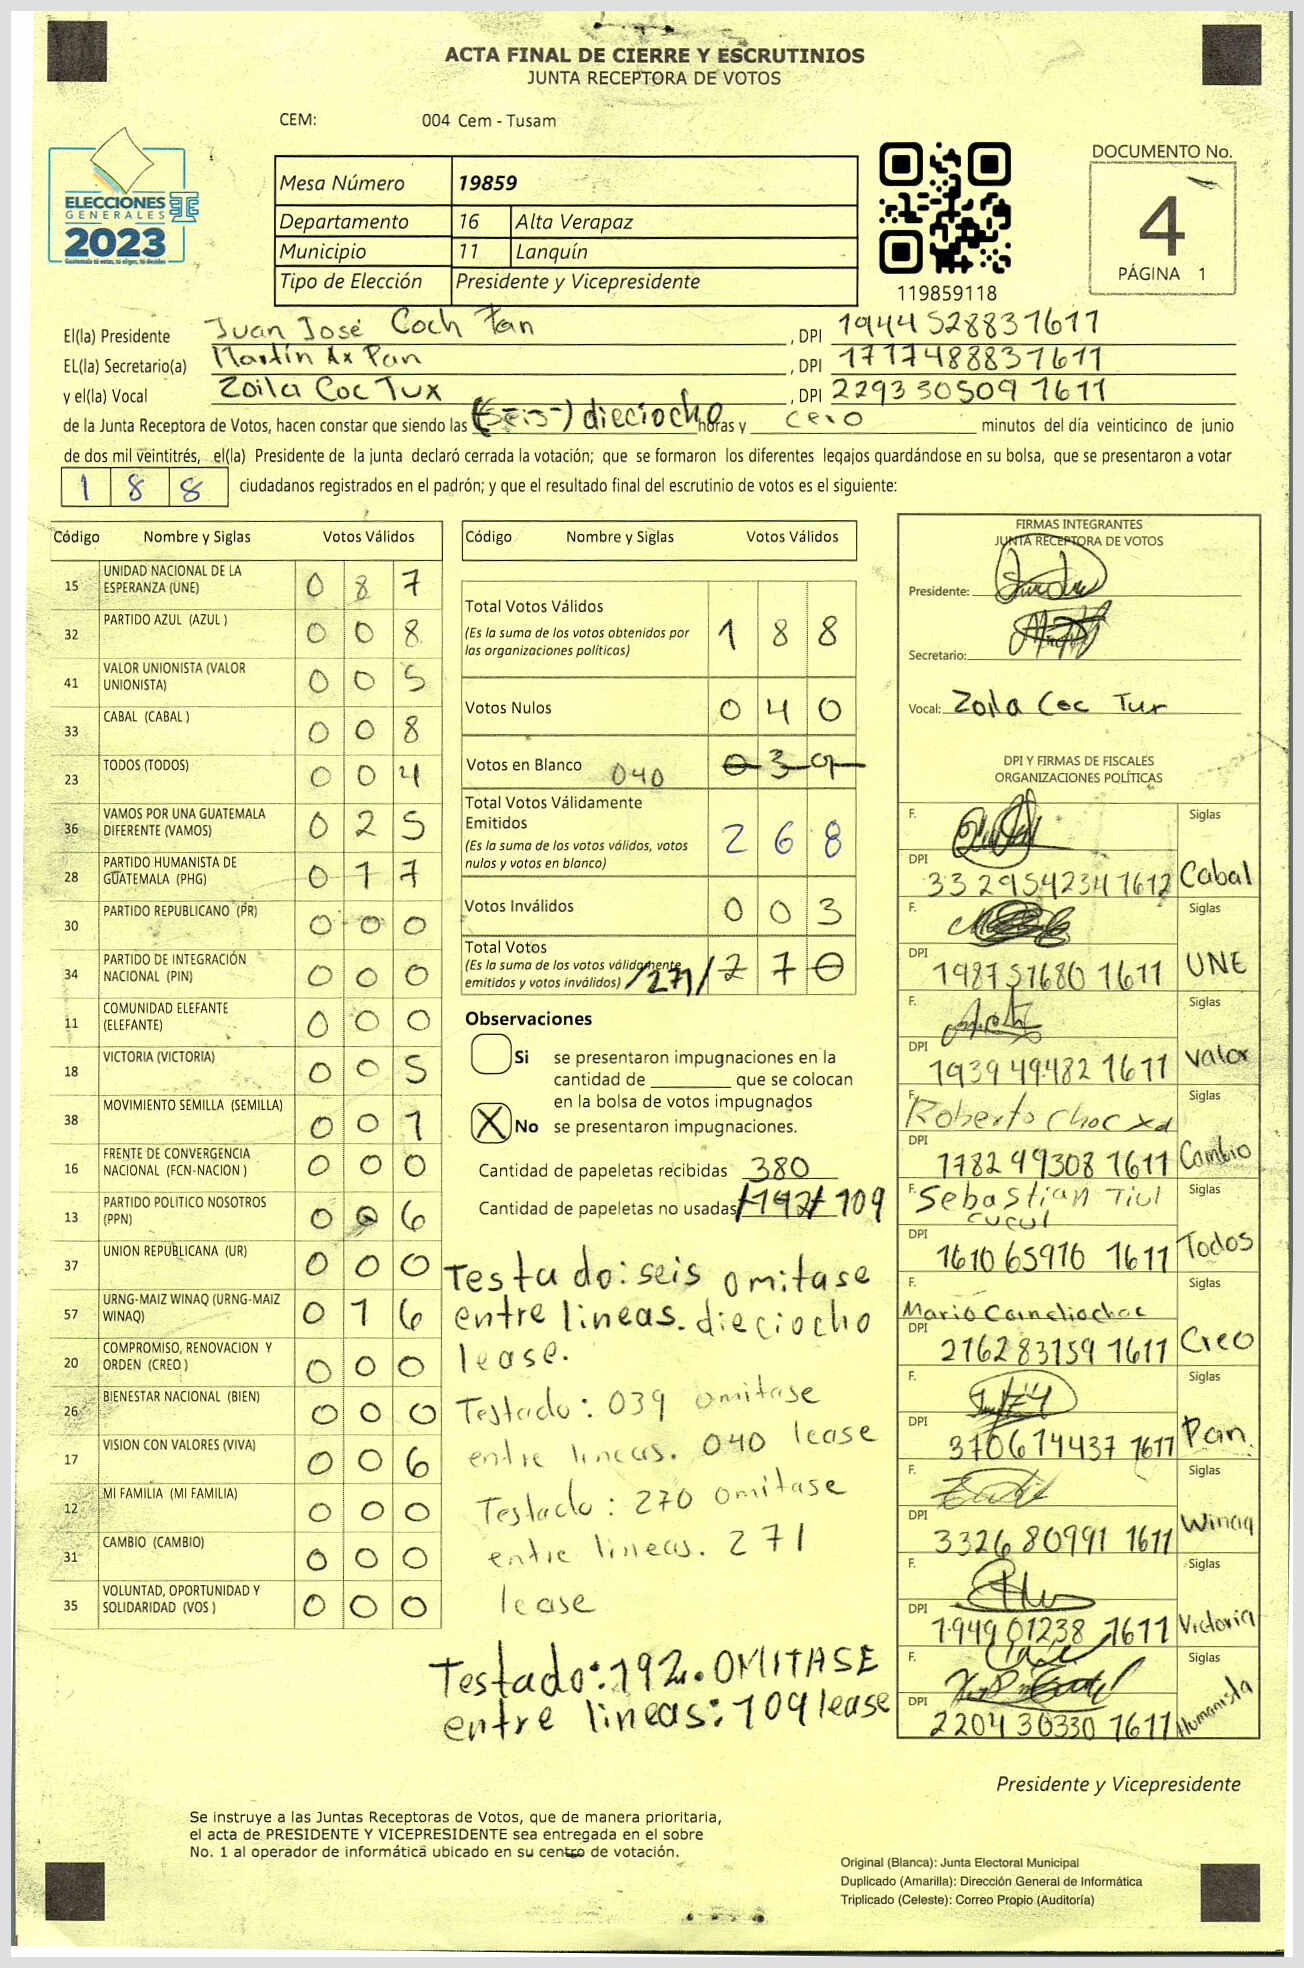 ACTA FINAL DE CIERRE Y ESCRUTINIOS
JUNTA RECEPTORA DE VOTOS
CEM: 004 Cem - Tusam
ELECCIONES
GENERALES
2023
Guatemala tú votas, tú eliges, tú decides
Mesa Número 19859
Departamento 16 Alta Verapaz
Municipio 11 Lanquín
Tipo de Elección Presidente y Vicepresidente
119859118
DOCUMENTO No.
4
PÁGINA 1
El(la) Presidente Juan José Coch Pan , DPI 1944528831611
EL(la) Secretario(a) Martín Ax Pan , DPI 1717488831611
y el(la) Vocal Zoila Coc Tux , DPI 2293305091611
de la Junta Receptora de Votos, hacen constar que siendo las (-seis-) dieciocho horas y cero minutos del día veinticinco de junio
de dos mil veintitrés, el(la) Presidente de la junta declaró cerrada la votación; que se formaron los diferentes legajos quardándose en su bolsa, que se presentaron a votar
188 ciudadanos registrados en el padrón; y que el resultado final del escrutinio de votos es el siguiente:
Código Nombre y Siglas Votos Válidos
15 UNIDAD NACIONAL DE LA ESPERANZA (UNE) 087
32 PARTIDO AZUL (AZUL ) 008
41 VALOR UNIONISTA (VALOR UNIONISTA) 005
33 CABAL (CABAL ) 008
23 TODOS (TODOS) 004
36 VAMOS POR UNA GUATEMALA DIFERENTE (VAMOS) 025
28 PARTIDO HUMANISTA DE GUATEMALA (PHG) 017
30 PARTIDO REPUBLICANO (PR) 000
34 PARTIDO DE INTEGRACIÓN NACIONAL (PIN) 000
11 COMUNIDAD ELEFANTE (ELEFANTE) 000
18 VICTORIA (VICTORIA) 005
38 MOVIMIENTO SEMILLA (SEMILLA) 001
16 FRENTE DE CONVERGENCIA NACIONAL (FCN-NACION ) 000
13 PARTIDO POLITICO NOSOTROS (PPN) 006
37 UNION REPUBLICANA (UR) 000
57 URNG-MAIZ WINAQ (URNG-MAIZ WINAQ) 016
20 COMPROMISO, RENOVACION Y ORDEN (CREO ) 000
26 BIENESTAR NACIONAL (BIEN) 000
17 VISION CON VALORES (VIVA) 006
12 MI FAMILIA (MI FAMILIA) 000
31 CAMBIO (CAMBIO) 000
35 VOLUNTAD, OPORTUNIDAD Y SOLIDARIDAD (VOS ) 000
Código Nombre y Siglas Votos Válidos
Total Votos Válidos 188
(Es la suma de los votos obtenidos por
las organizaciones políticas)
Votos Nulos 040
Votos en Blanco 040 039
Total Votos Válidamente
Emitidos 268
(Es la suma de los votos válidos, votos
nulos y votos en blanco)
Votos Inválidos 003
Total Votos
(Es la suma de los votos válidamente
emitidos y votos inválidos) /271/ 270
Observaciones
Si se presentaron impugnaciones en la
cantidad de ________ que se colocan
en la bolsa de votos impugnados
X No se presentaron impugnaciones.
Cantidad de papeletas recibidas 380
Cantidad de papeletas no usadas /192/ 109
Testado: seis omitase
entre lineas. dieciocho
lease.
Testado: 039 omitase
entre lineas. 040 lease
Testado: 270 omitase
entre lineas. 271
lease
Testado: 192. OMITASE
entre lineas: 109 lease
FIRMAS INTEGRANTES
JUNTA RECEPTORA DE VOTOS
Presidente:
Secretario:
Vocal: Zoila Coc Tux
DPI Y FIRMAS DE FISCALES
ORGANIZACIONES POLÍTICAS
F. Siglas
DPI 3329542341612 Cabal
F. Siglas
DPI 1987516801611 UNE
F. Siglas
DPI 1939494821611 Valor
F. Roberto Choc Xd Siglas
DPI 1782993081611 Cambio
F. Sebastian Tiul Cucul Siglas
DPI 1610659701611 Todos
F. Mario Siglas
DPI 2162831591611 Creo
F. Siglas
DPI 3706144371611 Pan
F. Siglas
DPI 3326809911611 Winaq
F. Siglas
DPI 1949012381611 Victoria
F. Siglas
DPI 2204303301611 Humanista
Presidente y Vicepresidente
Se instruye a las Juntas Receptoras de Votos, que de manera prioritaria,
el acta de PRESIDENTE Y VICEPRESIDENTE sea entregada en el sobre
No. 1 al operador de informática ubicado en su centro de votación.
Original (Blanca): Junta Electoral Municipal
Duplicado (Amarilla): Dirección General de Informática
Triplicado (Celeste): Correo Propio (Auditoría)